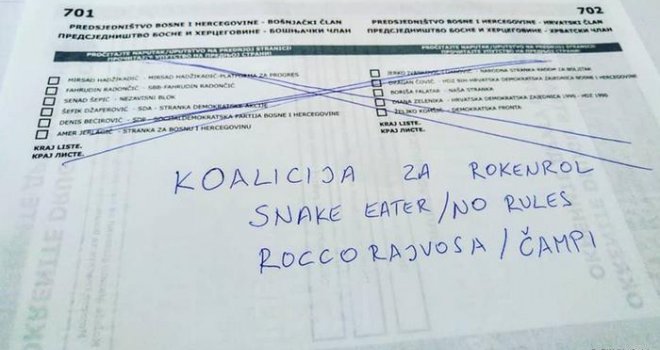 701
702
PREDSJEDNIŠTVO BOSNE I HERCEGOVINE - BOŠNJAČKI ČLAN
ПРЕДСЈЕДНИШТВО БОСНЕ И ХЕРЦЕГОВИНЕ - БОШЊАЧКИ ЧЛАН
PREDSJEDNIŠTVO BOSNE I HERCEGOVINE - HRVATSKI ČLAN
ПРЕДСЈЕДНИШТВО БОСНЕ И ХЕРЦЕГОВИНЕ - ХРВАТСКИ ЧЛАН
PROČITAJTE NAPUTAK/UPUTSTVO NA PREDNJOJ STRANICI
PROČITAJTE NAPUTAK/UPUTSTVO NA PREDNJOJ STRANICI
MIRSAD HADŽIKADIĆ - MIRSAD HADŽIKADIĆ-PLATFORMA ZA PROGRES
FAHRUDIN RADONČIĆ - SBB-FAHRUDIN RADONČIĆ
SENAD ŠEPIĆ - NEZAVISNI BLOK
ŠEFIK DŽAFEROVIĆ - SDA - STRANKA DEMOKRATSKE AKCIJE
DENIS BEĆIROVIĆ - SDP - SOCIJALDEMOKRATSKA PARTIJA BOSNE I HERCEGOVINE
AMER JERLAGIĆ - STRANKA ZA BOSNU I HERCEGOVINU
KRAJ LISTE.
КРАЈ ЛИСТЕ.
NARODNA STRANKA RADOM ZA BOLJITAK
DRAGAN ČOVIĆ - HRVATSKA DEMOKRATSKA ZAJEDNICA BOSNE I HERCEGOVINE
BORIŠA FALATAR - NAŠA STRANKA
DIANA ZELENIKA - HRVATSKA DEMOKRATSKA ZAJEDNICA 1990 - HDZ 1990
ŽELJKO KOMŠIĆ - DEMOKRATSKA FRONTA
KRAJ LISTE.
КРАЈ ЛИСТЕ.
KOALICIJA ZA ROKENROL
SNAKE EATER/NO RULES
ROCCO RAJVOSA/ČAMPI